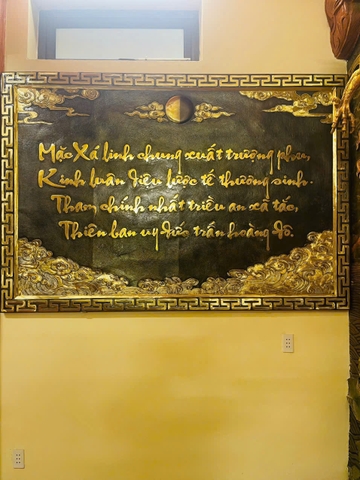 Mặc Xá linh chung xuất trượng phu,
Kinh luân diệu lược tế thương sinh.
Tham chính nhất triều an xã tắc,
Thiên ban uy đức trấn hoàng đô.